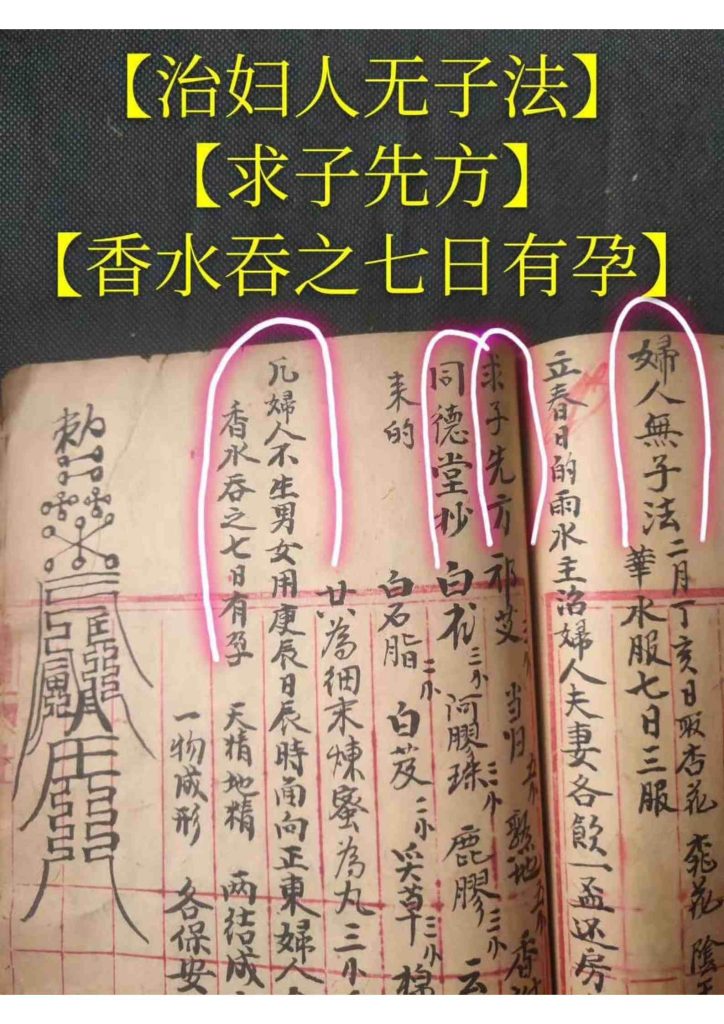 【治妇人无子法】
【求子先方】
【香水吞之七日有孕】
婦人無子法 二月丁亥日取杏花 桃花 陰
華水服七日三服
立春日的雨水主治婦人夫妻各飲一盃还房
求子先方 祁艾 三小 当归 五小 熟地 五小 香
同德堂抄 白 三小 阿膠珠 三小 鹿膠 三小 云
来的 白石脂 二小 白芨 二小 草 三小
共為细末煉蜜為丸 三小
凡婦人不生男女用庚辰日辰時面向正東婦人
香水吞之七日有孕 天精地精 两结成
一物成形 各保安
敕